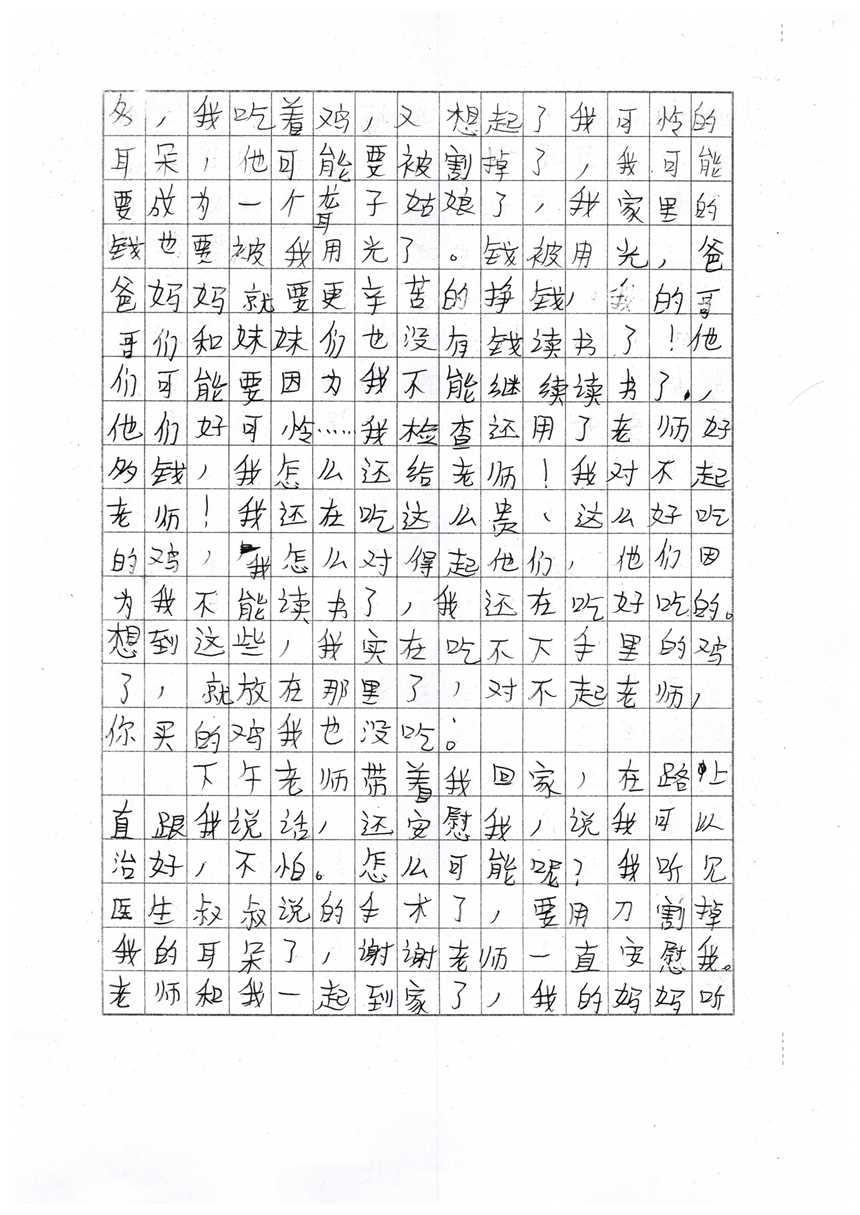 多，我吃着鸡，又想起了我可怜的
耳朵，他可能要被割掉了，我可能
要成为一个聋子姑娘了，我家里的
钱也要被我用光了。钱被用光，爸
爸妈妈就要更辛苦的挣钱，我的哥
哥们和妹妹们也没有钱读书了！他
们可能要因为我不能继续读书了.，
他们好可怜……我检查还用了老师好
多钱，我怎么还给老师！我对不起
老师！我还在吃这么贵、这么好吃
的鸡，我怎么对得起他们，他们因
为我不能读书了，我还在吃好吃的。
想到这些，我实在吃不下手里的鸡
了，就放在那里了，对不起老师，
你买的鸡我也没吃。
下午老师带着我回家，在路上
直跟我说话，还安慰我，说我可以
治好，不怕。怎么可能呢？我听见
医生叔叔说的手术了，要用刀割掉
我的耳朵了，谢谢老师一直安慰我。
老师和我一起到家了，我的妈妈听